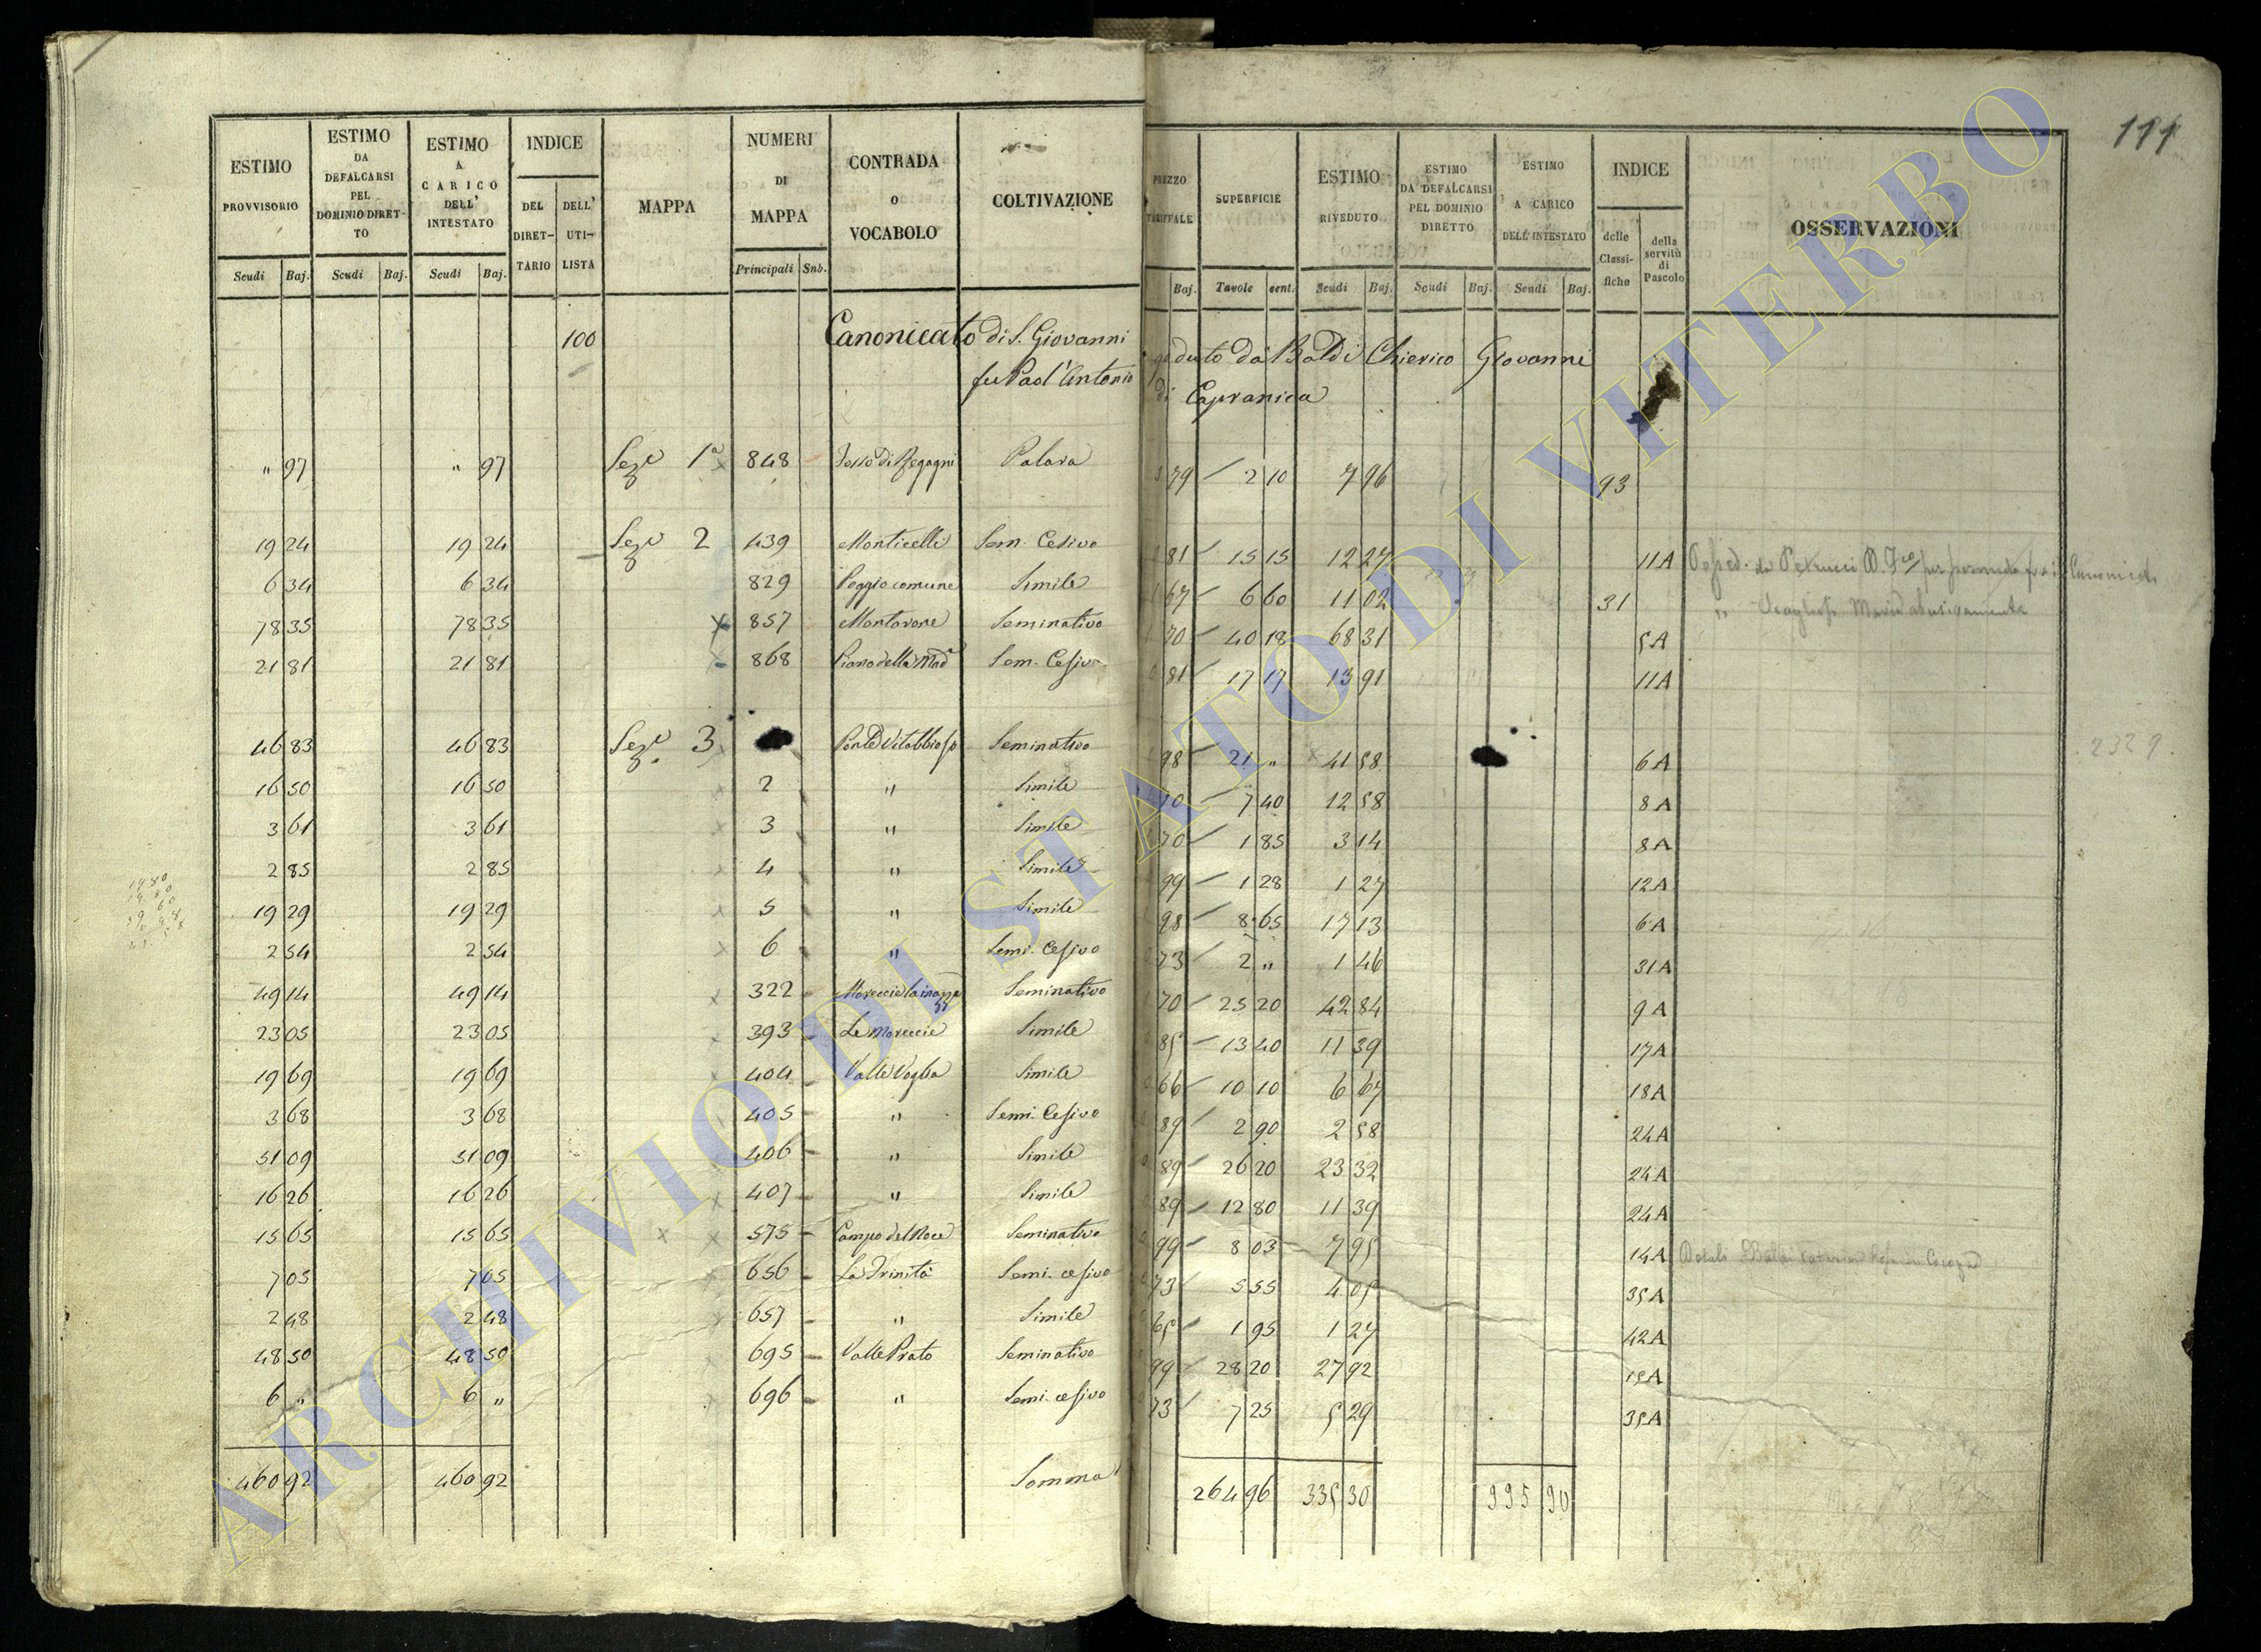 111
ESTIMO PROVVISORIO
ESTIMO DA DEFALCARSI PEL DOMINIO DIRETTO
ESTIMO A CARICO DELL' INTESTATO
INDICE
DEL DIRETTARIO
DELL' UTILISTA
MAPPA
NUMERI DI MAPPA
CONTRADA O VOCABOLO
COLTIVAZIONE
PREZZO TARIFFALE
SUPERFICIE
ESTIMO RIVEDUTO
ESTIMO DA DEFALCARSI PEL DOMINIO DIRETTO
ESTIMO A CARICO DELL' INTESTATO
INDICE
delle Classifiche
della servitù di Pascolo
OSSERVAZIONI
Scudi Baj. Scudi Baj. Scudi Baj. Principali Snb. Baj. Tavole cent. Scudi Baj. Scudi Baj. Scudi Baj.
100 Canonicato di S. Giovanni goduto da Baldi Chierico Giovanni
fu Paol' Antonio di Capranica
" 97 " 97 Sez.e 1a 848 79 2 10 7 96 93
19 24 19 24 Sez.e 2 439 Monticelli Sem. Cesivo 81 15 15 12 27 11A
6 34 6 34 829 Poggio comune Simile 67 6 60 11 02 31
78 35 78 35 857 Seminativo 70 40 18 68 31 5A
21 81 21 81 868 Piano della Mad.a Sem. Cesivo 81 17 17 13 91 11A
46 83 46 83 Sez.e 3 Seminativo 98 21 " 41 58 6A
16 50 16 50 2 " Simile 70 7 40 12 58 8A
3 61 3 61 3 " Simile 70 1 85 3 14 8A
2 85 2 85 4 " Simile 99 1 28 1 27 12A
19 29 19 29 5 " Simile 98 8 65 17 13 6A
2 54 2 54 6 " Semi. Cesivo 73 2 " 1 46 31A
49 14 49 14 322 Seminativo 70 25 20 42 84 9A
23 05 23 05 393 Le Moreccie Simile 85 13 40 11 39 17A
19 69 19 69 404 Valle Voglia Simile 66 10 10 6 67 18A
3 68 3 68 405 " Semi. Cesivo 89 2 90 2 58 24A
51 09 51 09 406 " Simile 89 26 20 23 32 24A
16 26 16 26 407 " Simile 89 12 80 11 39 24A
15 65 15 65 575 Campo del Noce Seminativo 99 8 03 7 95 14A
7 05 7 05 656 La Trinità Semi. cesivo 73 5 55 4 05 35A
2 48 2 48 657 " Simile 65 1 95 1 27 42A
48 50 48 50 695 Valle Prato Seminativo 99 28 20 27 92 15A
6 " 6 " 696 " Semi. cesivo 73 7 25 5 29 35A
460 92 460 92 Somma 264 96 335 30 335 30
ARCHIVIO DI STATO DI VITERBO